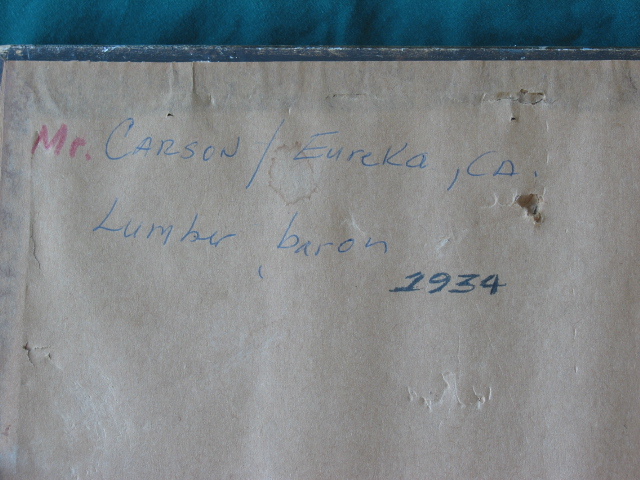 Mr. CARSON / Eureka, CA.
Lumber baron
1934